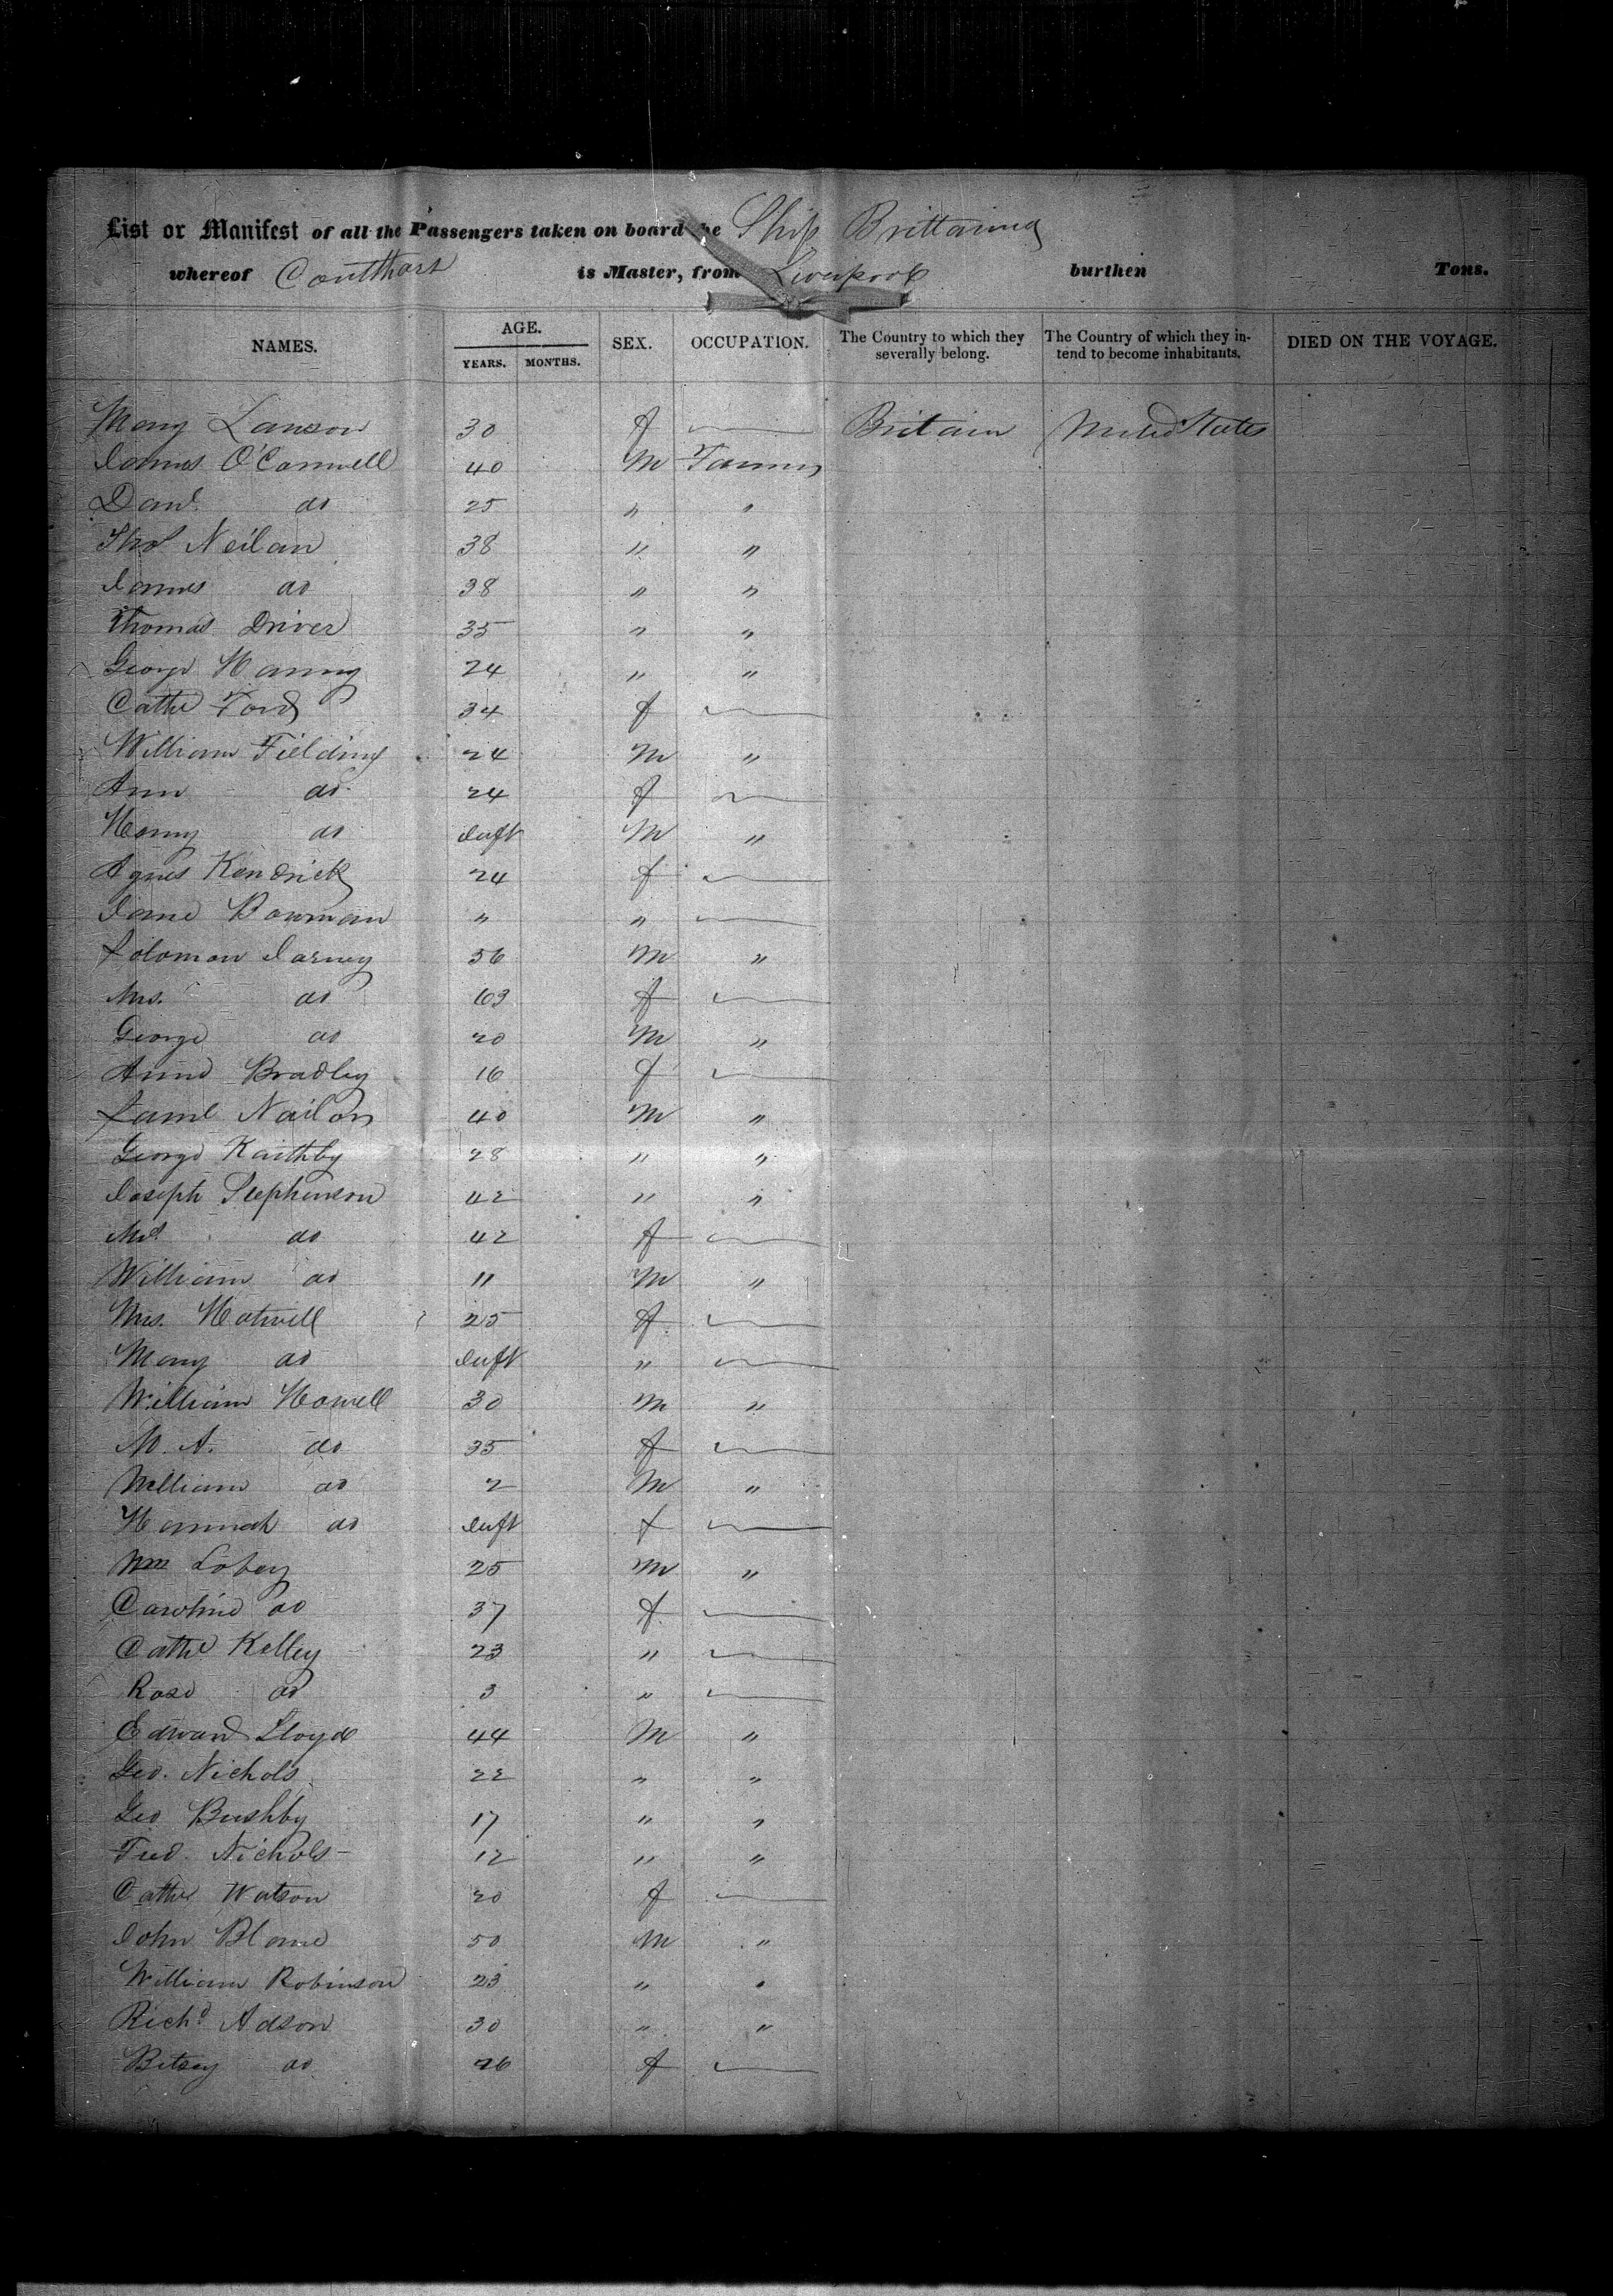 List or Manifest of all the Passengers taken on board the Ship Brittannia
whereof Coutthart is Master, from Liverpool burthen Tons.
NAMES. AGE. YEARS. MONTHS. SEX. OCCUPATION. The Country to which they severally belong. The Country of which they intend to become inhabitants. DIED ON THE VOYAGE.
Mary Lawson 30 f — Britain United States
James O'Connell 40 M Farmer
Danl. do 25 " "
Thos Neilan 38 " "
James do 38 " "
Thomas Driver 35 " "
George Hanny 24 " "
Cathe Ford 34 f —
William Fielding 24 M "
Ann do 24 f —
Henry do Inft M "
Agnes Kendrick 24 f —
Jane Bowman " " —
Solomon Jarney 56 M "
Mrs. do 63 f —
George do 20 M "
Anne Bradley 16 f —
Saml Nailon 40 M "
George Kaithby 28 " "
Joseph Stephenson 42 " "
Mrs. do 42 f —
William do 11 M "
Mrs. Hatwell 25 f —
Mary do Inft " —
William Howell 30 M "
M. A. do 35 f —
William do 2 M "
Hannah do Inft f —
Wm Lobey 25 M "
Caroline do 37 f —
Cathe Kelley 23 " —
Rose do 3 " —
Edward Lloyd 44 M "
Geo. Nichols 22 " "
Geo Bushby 17 " "
Fred. Nichols 12 " "
Cathe Watson 20 f —
John Blame 50 M "
William Robinson 23 " "
Richd Adson 30 " "
Betsey do 26 f —